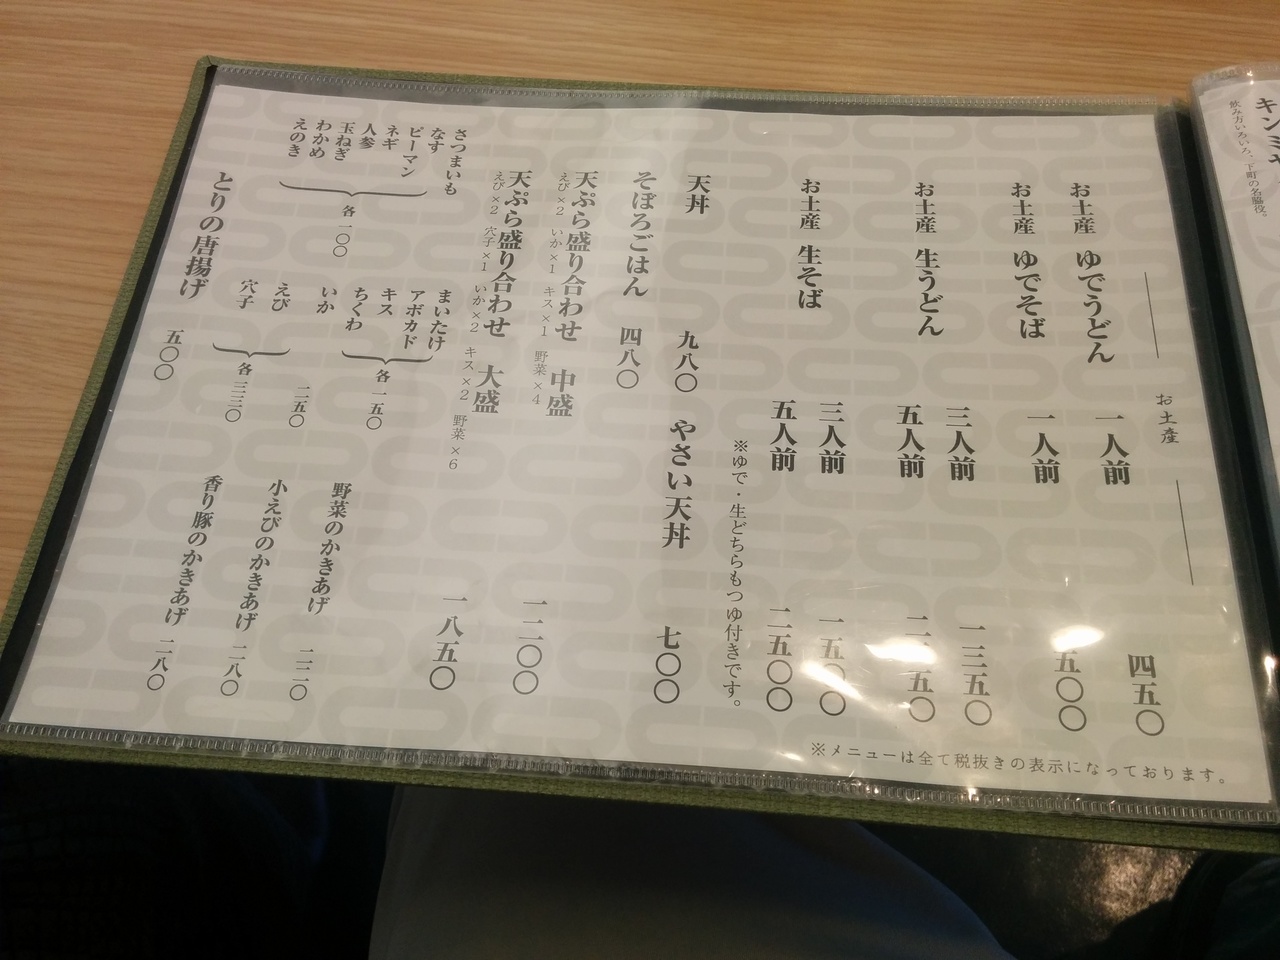 お土産
お土産 ゆでうどん 一人前 四五〇
お土産 ゆでそば 一人前 五〇〇
お土産 生うどん 三人前 一三五〇
五人前 二一五〇
お土産 生そば 三人前 一五〇〇
五人前 二五〇〇
※ゆで・生どちらもつゆ付きです。
天丼 九八〇 やさい天丼 七〇〇
そぼろごはん 四八〇
天ぷら盛り合わせ 中盛 一二〇〇
えび×2 いか×1 キス×1 野菜×4
天ぷら盛り合わせ 大盛 一八五〇
えび×2 穴子×1 いか×2 キス×2 野菜×6
さつまいも
なす
ピーマン
ネギ
人参
玉ねぎ
わかめ
えのき
各一〇〇
まいたけ
アボカド
キス
ちくわ
各一五〇
いか 二五〇
えび
穴子
各三三〇
野菜のかきあげ 二三〇
小えびのかきあげ 二八〇
香り豚のかきあげ 二八〇
とりの唐揚げ 五〇〇
※メニューは全て税抜きの表示になっております。
キンミヤ
飲み方いろいろ、下町の名脇役。